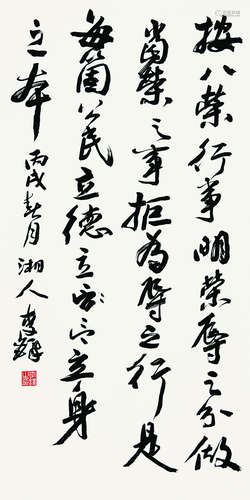 按八榮行事明榮辱之分做
當榮之事拒為辱之行是
每箇公民立德立立身
之本 丙戌春月 湘人 李鐸